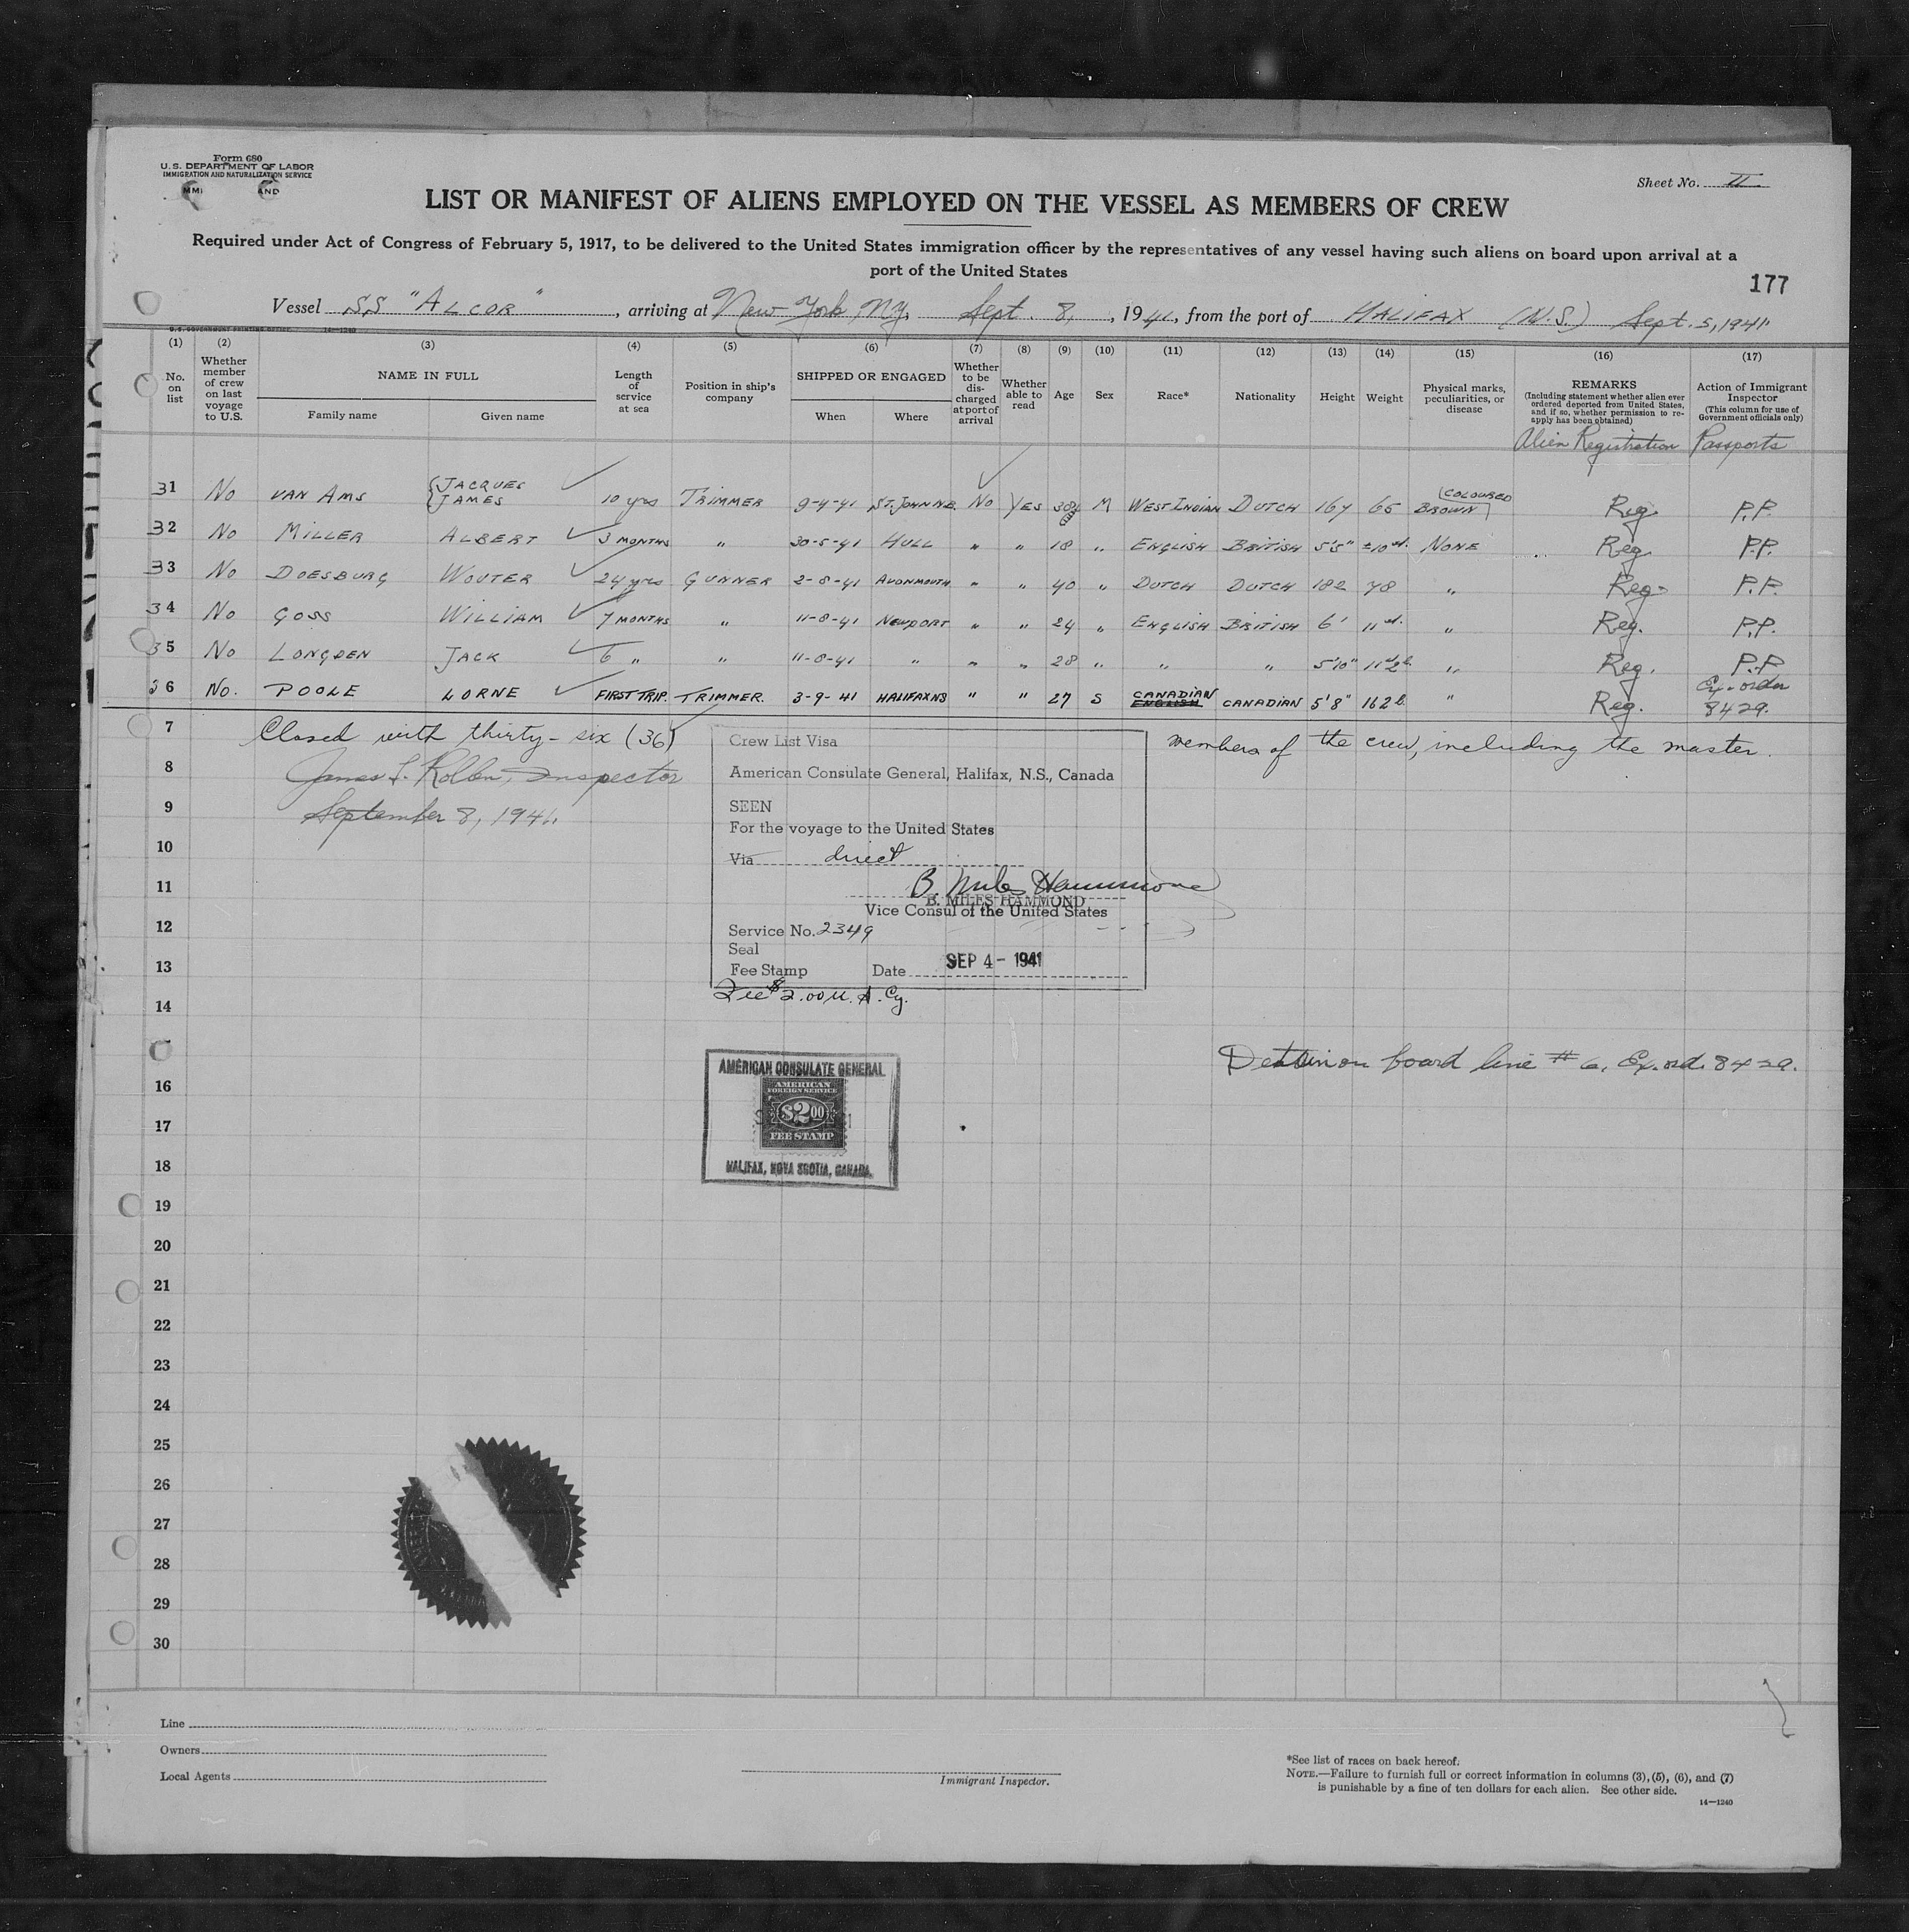 Form 680
U. S. DEPARTMENT OF LABOR
IMMIGRATION AND NATURALIZATION SERVICE
Sheet No. II
LIST OR MANIFEST OF ALIENS EMPLOYED ON THE VESSEL AS MEMBERS OF CREW
Required under Act of Congress of February 5, 1917, to be delivered to the United States immigration officer by the representatives of any vessel having such aliens on board upon arrival at a
port of the United States
177
Vessel SS "ALCOR", arriving at New York, N.Y. Sept. 8, , 1941, from the port of HALIFAX (N.S.) Sept. 5, 1941
U. S. GOVERNMENT PRINTING OFFICE 14—1240
(1) (2) (3) (4) (5) (6) (7) (8) (9) (10) (11) (12) (13) (14) (15) (16) (17)
No. on list
Whether member of crew on last voyage to U.S.
NAME IN FULL
Family name
Given name
Length of service at sea
Position in ship's company
SHIPPED OR ENGAGED
When
Where
Whether to be discharged at port of arrival
Whether able to read
Age
Sex
Race*
Nationality
Height
Weight
Physical marks, peculiarities, or disease
REMARKS
(Including statement whether alien ever ordered deported from United States, and if so, whether permission to reapply has been obtained)
Action of Immigrant Inspector
(This column for use of Government officials only)
Alien Registration Passports
31 No VAN AMS {JACQUES JAMES 10 yrs TRIMMER 9-4-41 ST. JOHN NB. No YES 38 M WEST INDIAN DUTCH 167 65 (COLOURED BROWN) Reg. P.P.
32 No MILLER ALBERT 3 MONTHS " 30-5-41 HULL " " 18 " ENGLISH BRITISH 5'5" ±10 st. NONE Reg. P.P.
33 No DOESBURG WOUTER 24 yrs GUNNER 2-8-41 AVONMOUTH " " 40 " DUTCH DUTCH 182 78 " Reg. P.P.
34 No GOSS WILLIAM 7 MONTHS " 11-8-41 NEWPORT " " 24 " ENGLISH BRITISH 6' 11 st. " Reg. P.P.
35 No LONGDEN JACK 6 " " 11-8-41 " " " 28 " " " 5'10" " Reg. P.P
36 No. POOLE LORNE FIRST TRIP. TRIMMER. 3-9-41 HALIFAX NS " " 27 S CANADIAN ENGLISH CANADIAN 5'8" 162 lb. " Reg. Ex. order 8429.
7 Closed with thirty-six (36) members of the crew, including the master.
8 James Inspector
9 September 8, 1941.
10
11
12
13
14
16
17
18
19
20
21
22
23
24
25
26
27
28
29
30
Crew List Visa
American Consulate General, Halifax, N.S., Canada
SEEN
For the voyage to the United States
Via direct
B. Miles Hammond
B. MILES HAMMOND
Vice Consul of the United States
Service No. 2349
Seal
Fee Stamp Date SEP 4 - 1941
Fee $2.00 U. S. Cy.
Detain on board line # 6, Ex. ord. 8429.
AMERICAN CONSULATE GENERAL
AMERICAN
FOREIGN SERVICE
$2.00
FEE STAMP
HALIFAX, NOVA SCOTIA, CANADA.
Line
Owners
Local Agents
Immigrant Inspector.
*See list of races on back hereof.
NOTE.—Failure to furnish full or correct information in columns (3), (5), (6), and (7)
is punishable by a fine of ten dollars for each alien. See other side.
14—1240